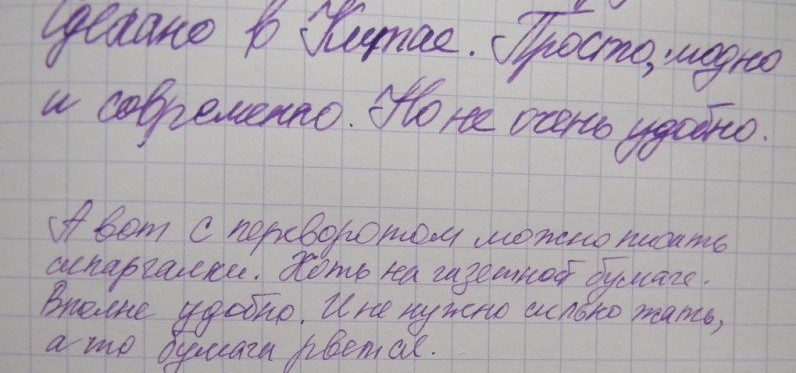 Сделано в Китае. Просто, модно
и современно. Но не очень удобно.
А вот с переворотом можно писать
шпаргалки. Хоть на газетной бумаге.
Вполне удобно. И не нужно сильно жать,
а то бумага рвется.